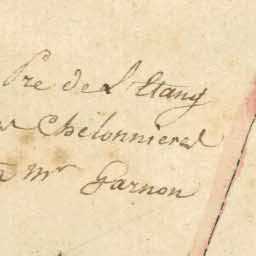 Pré de L'Etang
Chelonnieres
à mr Garnon